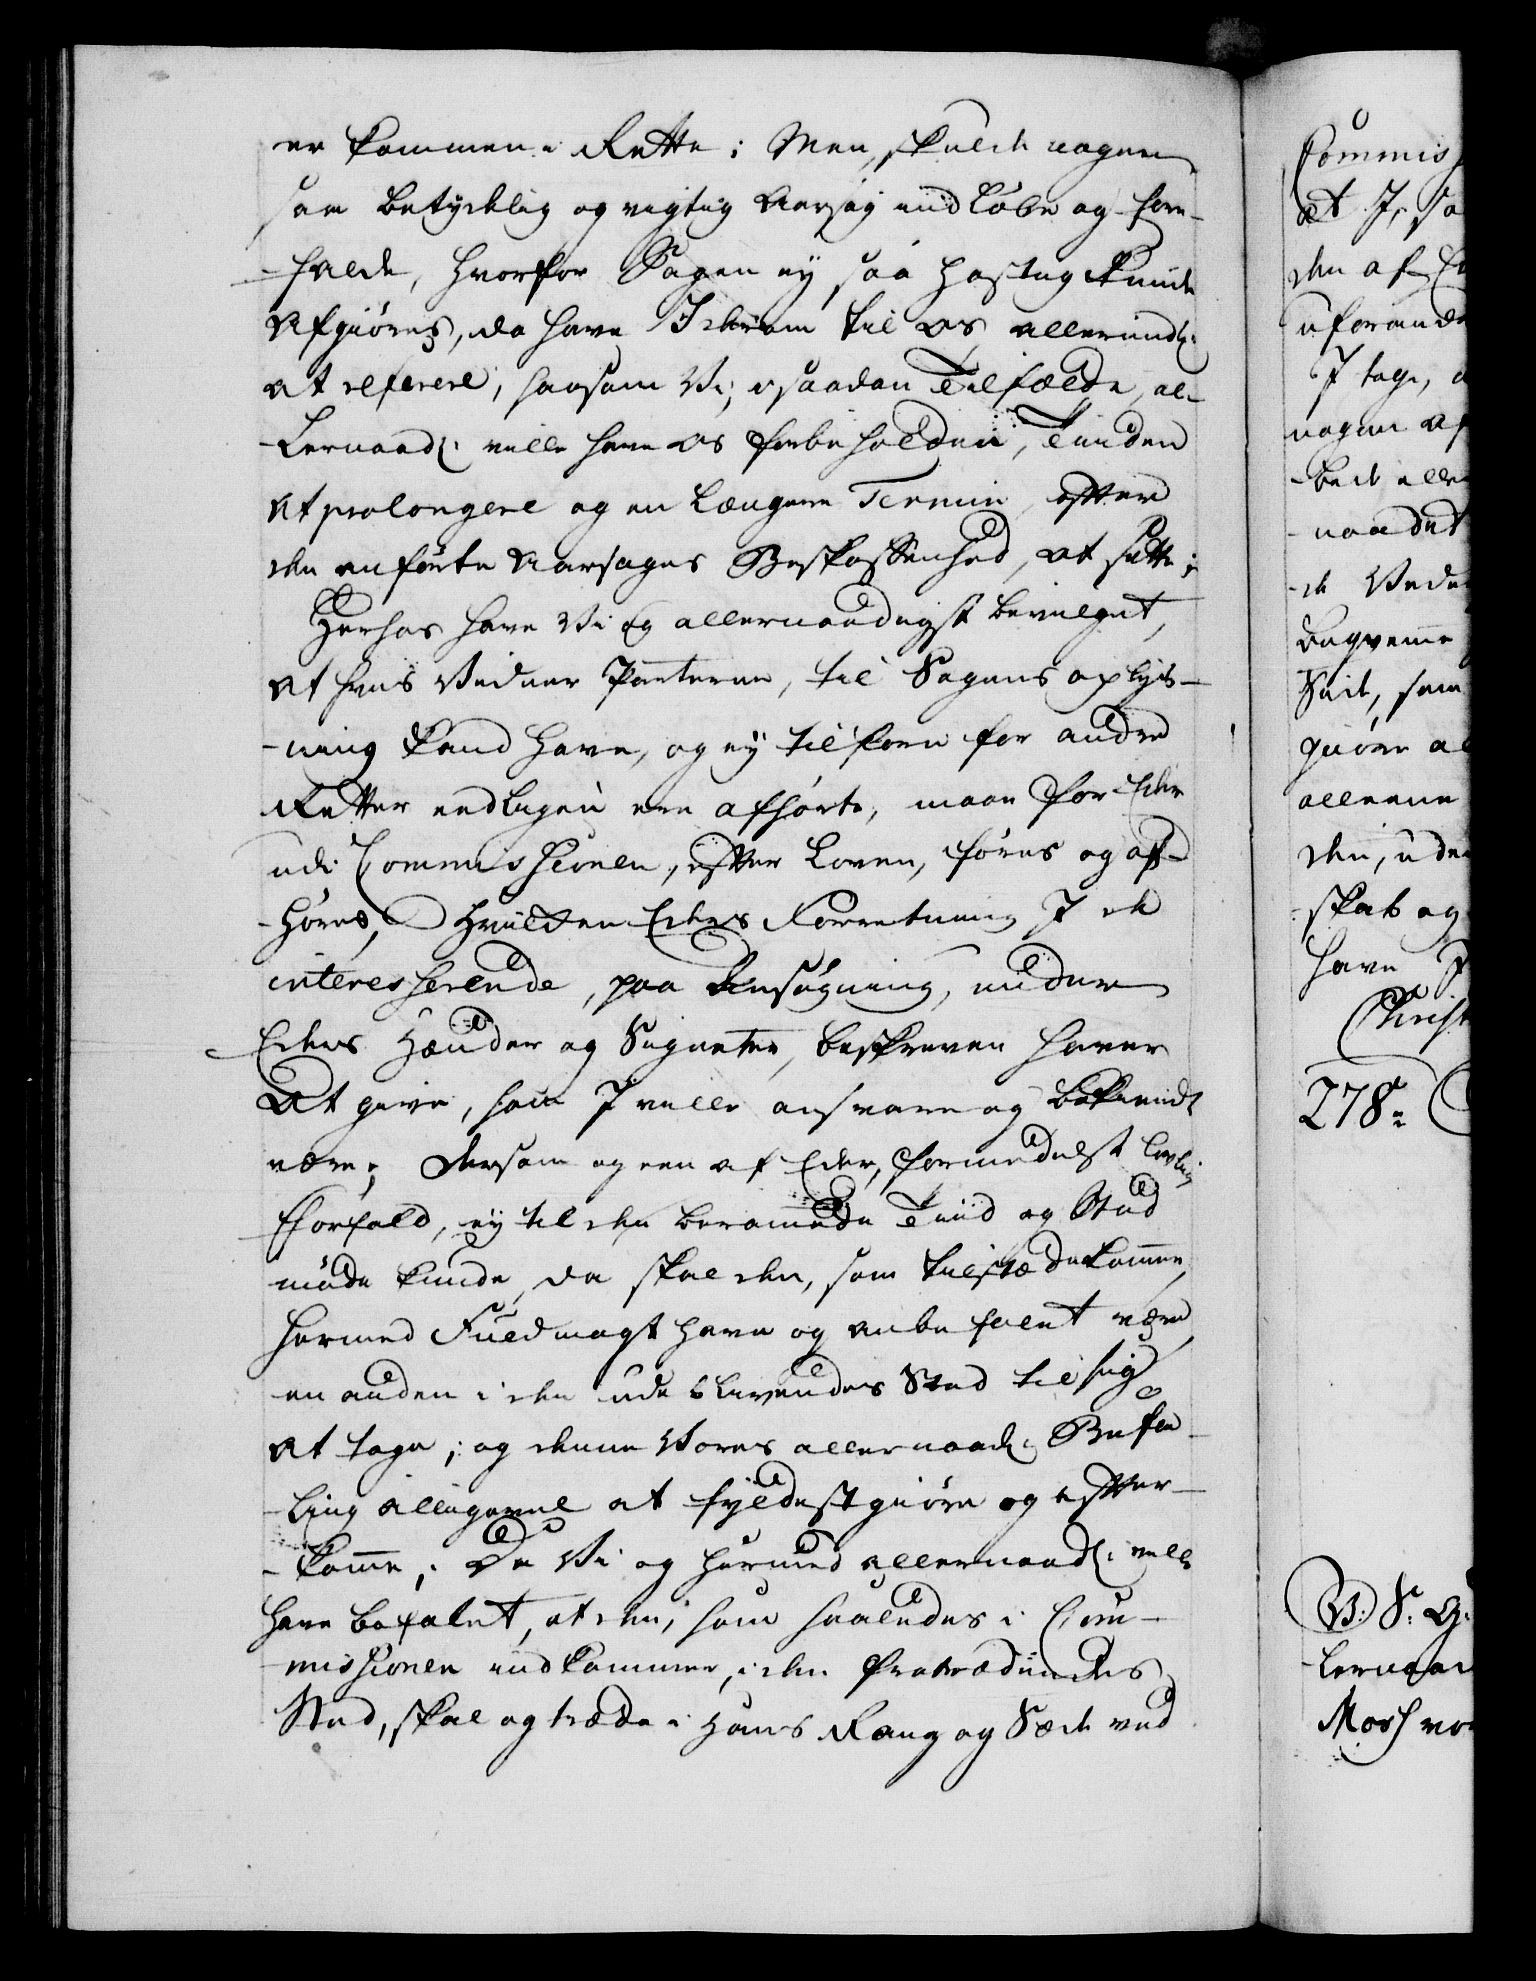 er kommen i Rette; Men, skulde nogen
saa betydelig og vigtig Aarsag indløbe og fore-
-falde, hvorfor Sagen ej saa hastig kunde
afgiøres, da have I derom til Os allerundd:
at referere, saasom Vi, i saadan Tilfælde, al-
-lernaad: ville have Os forbeholden, Tiiden
at prolongere og en længere Termin, efter
den anførte Aarsages Beskaffenhed, at sætte;
Herhos have Vi og allernaadigst bevilget,
at hvis Vidner Parterne, til Sagens oplys-
-ning kand have, og ej tilforn for andre
Retter endeligen ere afhørte, maae for Eder
udi Commissionen, efter Loven, føres og af-
-høres, Hvilken Eders Forretning I de
interesserende, paa Ansøgning, under
Eders Hænder og Signeter, beskreven haver
at give, som I ville ansvare og bekiendt
være; Dersom og een af Eder, formedelst lovlig
Forfald, ej til den berammede Tiid og Sted
møde kunde, da skal den, som tilstæde komme,
hermed Fuldmagt have og anbefalet være,
en anden i den udeblivendes Sted til sig
at tage; og denne Vores allernaad: Befa-
-ling alligevel at fyldestgiøre og efter-
-komme; Da Vi og hermed allernaad: ville
have befalet, at den, som saaledes i Com-
-missionen indkommer, i den fratrædendes
Sted, skal og træde i Hans Rang og Sæde ved
Commis
at I, sa
den af
uforand
I tage, a
nogen af
-bede alle
-naadet
-de Vede
beqvemme
Siide, som
giøre al
alleene
den, uden
-skab og
have I
Christ
278.
V: S: G:
lernaad
Mosh vo